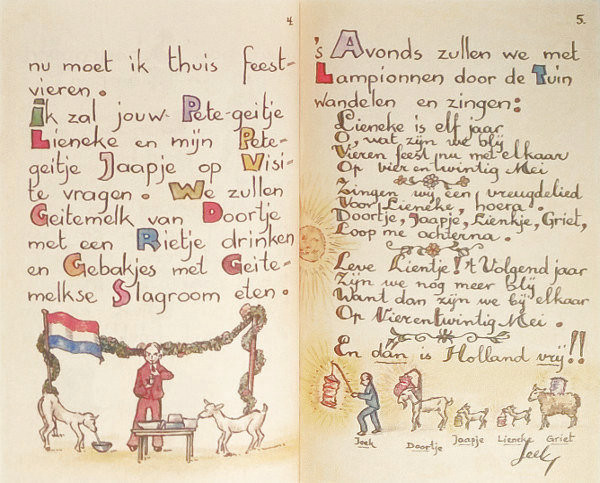 4.
nu moet ik thuis feest-
vieren.
Ik zal jouw Pete-geitje
Lieneke en mijn Pete-
geitje Jaapje op Visi-
te vragen. We zullen
Geitemelk van Doortje
met een Rietje drinken
en Gebakjes met Geite-
melkse Slagroom eten.
5.
's Avonds zullen we met
Lampionnen door de Tuin
wandelen en zingen:
Lieneke is elf jaar
O, wat zijn we blij
Vieren feest nu met elkaar
Op vier en twintig Mei
Zingen wij een vreugdelied
Voor Lieneke, hoera.
Doortje, Jaapje, Lienkje, Griet,
Loop me achterna.
Leve Lientje! 't Volgend jaar
Zijn we nog meer blij
Want dan zijn we bij elkaar
Op Vierentwintig Mei.
En dán is Holland vrij!!
Jaek Doortje Jaapje Lieneke Griet